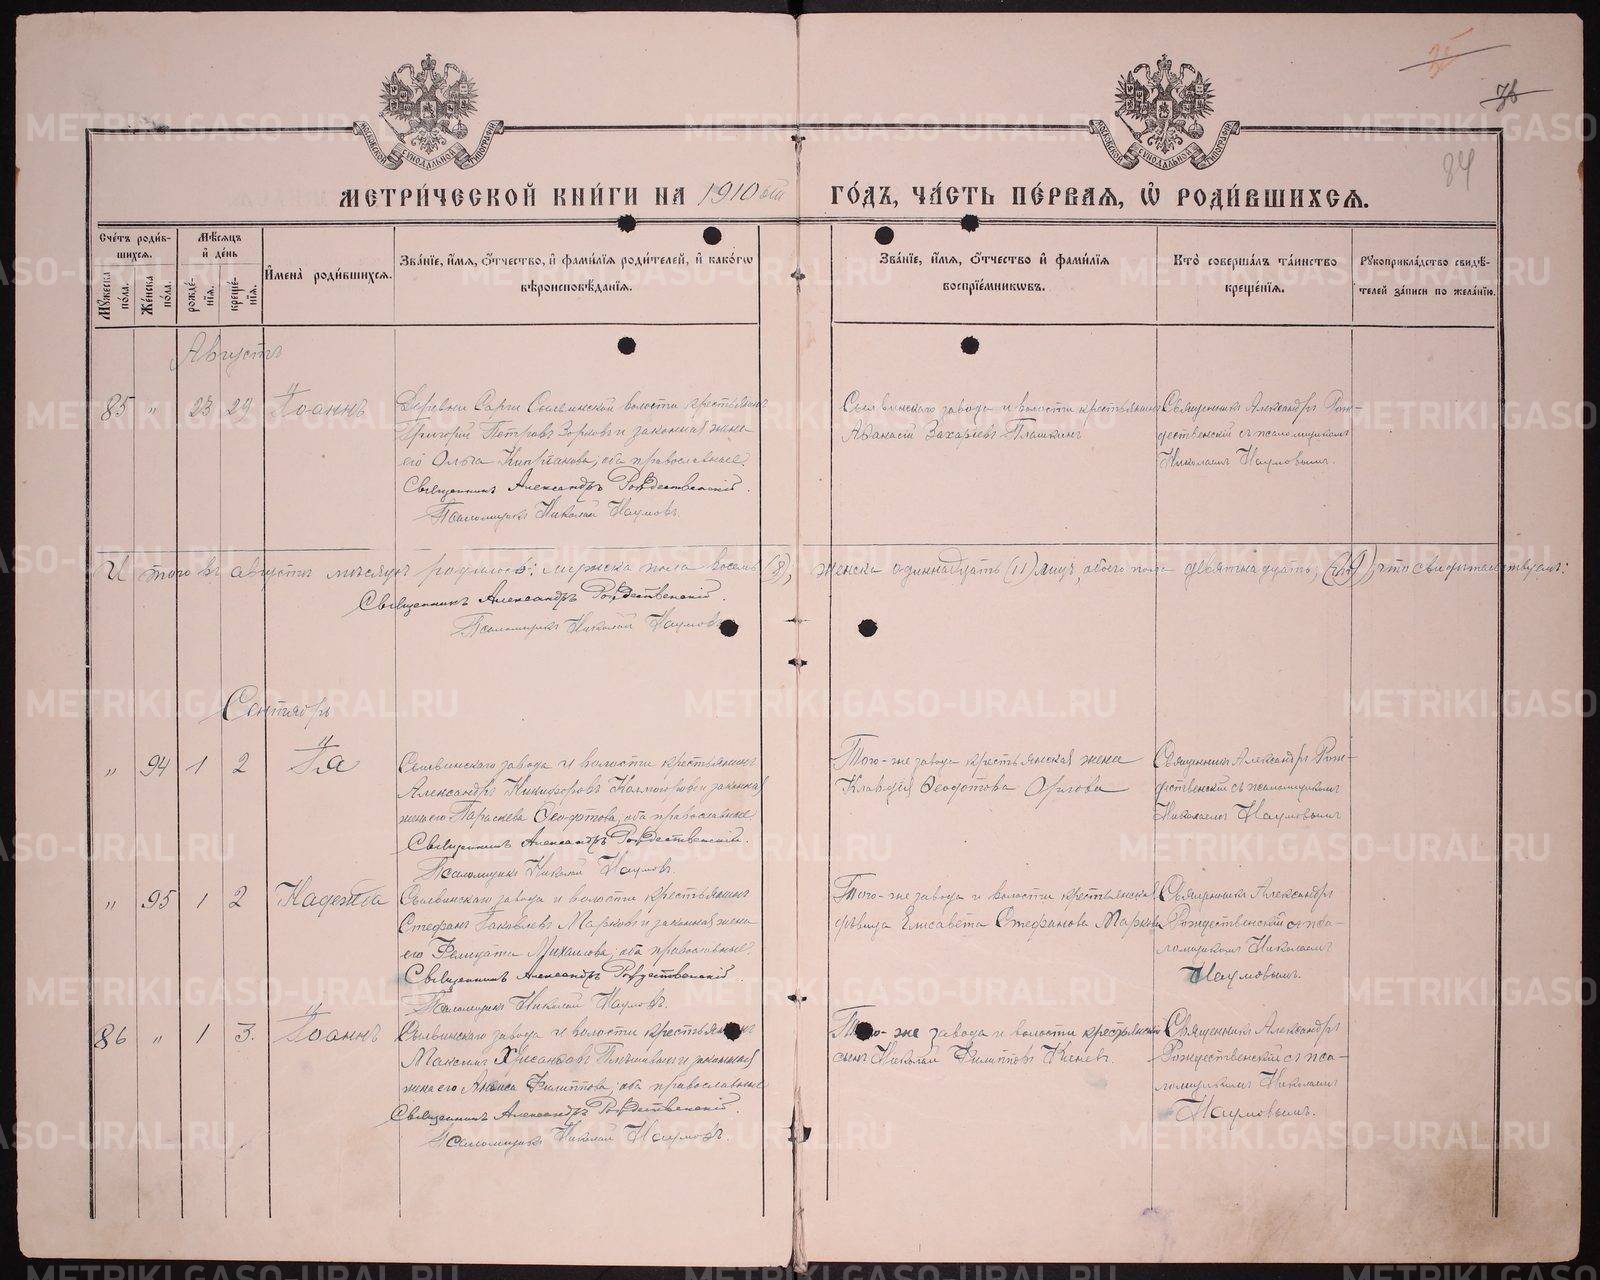 МЕТРИ́ЧЕСКОЙ КНИ́ГИ НА 1910 ый ГО́ДЪ, ЧА́СТЬ ПЕ́РВАЯ, Ѡ҆ РОДИ́ВШИХСЯ.
84
МОСКОВСКОЙ СѴНОДАЛЬНОЙ ТИПОГРАФІИ
МОСКОВСКОЙ СѴНОДАЛЬНОЙ ТИПОГРАФІИ
Сче́тъ роди́вшихся.
Мꙋ́жеска по́ла.
Же́нска по́ла.
Мѣ́сяцъ и҆ де́нь
рожде́нїя.
креще́нїя.
И҆мена̀ роди́вшихся.
Зва́нїе, и҆́мя, ѻ҆́тчество, и҆ фами́лїя роди́телей, и҆ како́гѡ
вѣроисповѣ́данїя.
Зва́нїе, и҆́мя, ѻ҆́тчество и҆ фами́лїя
воспрїе́мникѡвъ.
Кто̀ соверша́лъ та́инство
креще́нїя.
Рꙋкоприкла́дство свидѣ́-
телей за́писи по жела́нїю.
Августъ
85 " 23 29 Іоаннъ
Деревни Сарги Сылвинской волости крестьянинъ
Григорій Петровъ Зорковъ и законная жена
его Ольга Кипріанова, оба православные.
Священникъ Александръ Рождественскій.
Псаломщикъ Николай Наумовъ.
Сылвинскаго завода и волости крестьянинъ
Аѳанасій Захаріевъ Плашкинъ
Священникъ Александръ Рож-
дественскій съ псаломщикомъ
Николаемъ Наумовымъ.
И того въ августѣ мѣсяцѣ родилось: мужска пола восемь (8), женска одиннадцать (11) лицъ, обоего пола девятнадцать, (19), что свидѣтельствуемъ:
Священникъ Александръ Рождественскій.
Псаломщикъ Николай Наумовъ
Сентябрь
" 94 1 2 Ія
Сылвинскаго завода и волости крестьянинъ
Александръ Никифоровъ Калмогоровъ и законная
жена его Параскева Ѳеодотова, оба православные
Священникъ Александръ Рождественскій.
Псаломщикъ Николай Наумовъ.
Того-же завода крестьянская жена
Клавдія Ѳеодотова Орлова
Священникъ Александръ Рож-
дественскій съ псаломщикомъ
Николаемъ Наумовымъ
" 95 1 2 Надежда
Сылвинскаго завода и волости крестьянинъ
Стефанъ Іаковлевъ Марковъ и законная жена
его Фелицата Михаилова, оба православные.
Священникъ Александръ Рождественскій.
Псаломщикъ Николай Наумовъ.
Того-же завода и волости крестьянская
дѣвица Елисавета Стефанова Маркова
Священникъ Александръ
Рождественскій съ пса-
ломщикомъ Николаемъ
Наумовымъ.
86 " 1 3. Іоаннъ
Сылвинскаго завода и волости крестьянинъ
Максимъ Хрисанѳовъ и законная
жена его Аниса Филиппова, оба православные
Священникъ Александръ Рождественскій.
Псаломщикъ Николай Наумовъ.
Того-же завода и волости крестьянскій
сынъ Николай Филипповъ Кинёвъ.
Священникъ Александръ
Рождественскій съ пса-
ломщикомъ Николаемъ
Наумовымъ.
METRIKI.GASO-URAL.RU